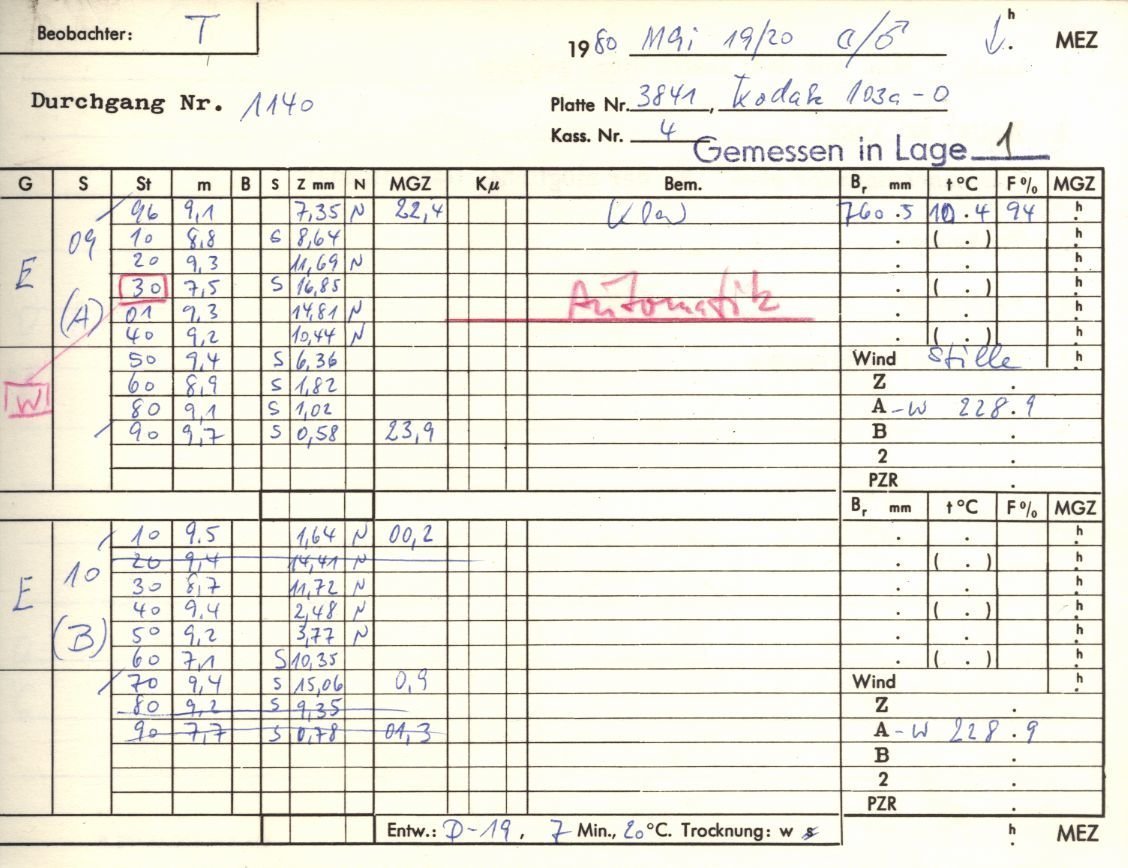 Beobachter: T
1980 Mai 19/20 h MEZ
Durchgang Nr. 1140
Platte Nr. 3841, Kodak 103a-O
Kass. Nr. 4
Gemessen in Lage 1
G S St m B S Z mm N MGZ Kμ Bem. Br mm t°C F% MGZ
96 9,1 7,35 N 22,4 klar 760.5 10.4 94 h
09 10 8,8 S 8,64 ( . ) h
E 20 9,3 11,69 N . . h
30 7,5 S 16,85 Automatik ( . ) h
(A) 01 9,3 14,81 N . . h
40 9,2 10,44 N ( . ) h
50 9,4 S 6,36 Wind Stille h
W 60 8,9 S 1,82 Z .
80 9,1 S 1,02 A -W 228.9
90 9,7 S 0,58 23,9 B .
2 .
PZR .
Br mm t°C F% MGZ
10 9.5 1,64 N 00,2 . . h
20 9,4 14,41 N ( . ) h
E 10 30 8,7 11,72 N . . h
40 9,4 2,48 N ( . ) h
(B) 50 9,2 3,77 N . . h
60 7,1 S 10,35 ( . ) h
70 9,4 S 15,06 0,9 Wind h
80 9,2 S 9,35 Z .
90 7,7 S 0,78 01,3 A -W 228.9
B .
2 .
PZR .
Entw.: D-19, 7 Min., 20°C. Trocknung: w s h MEZ